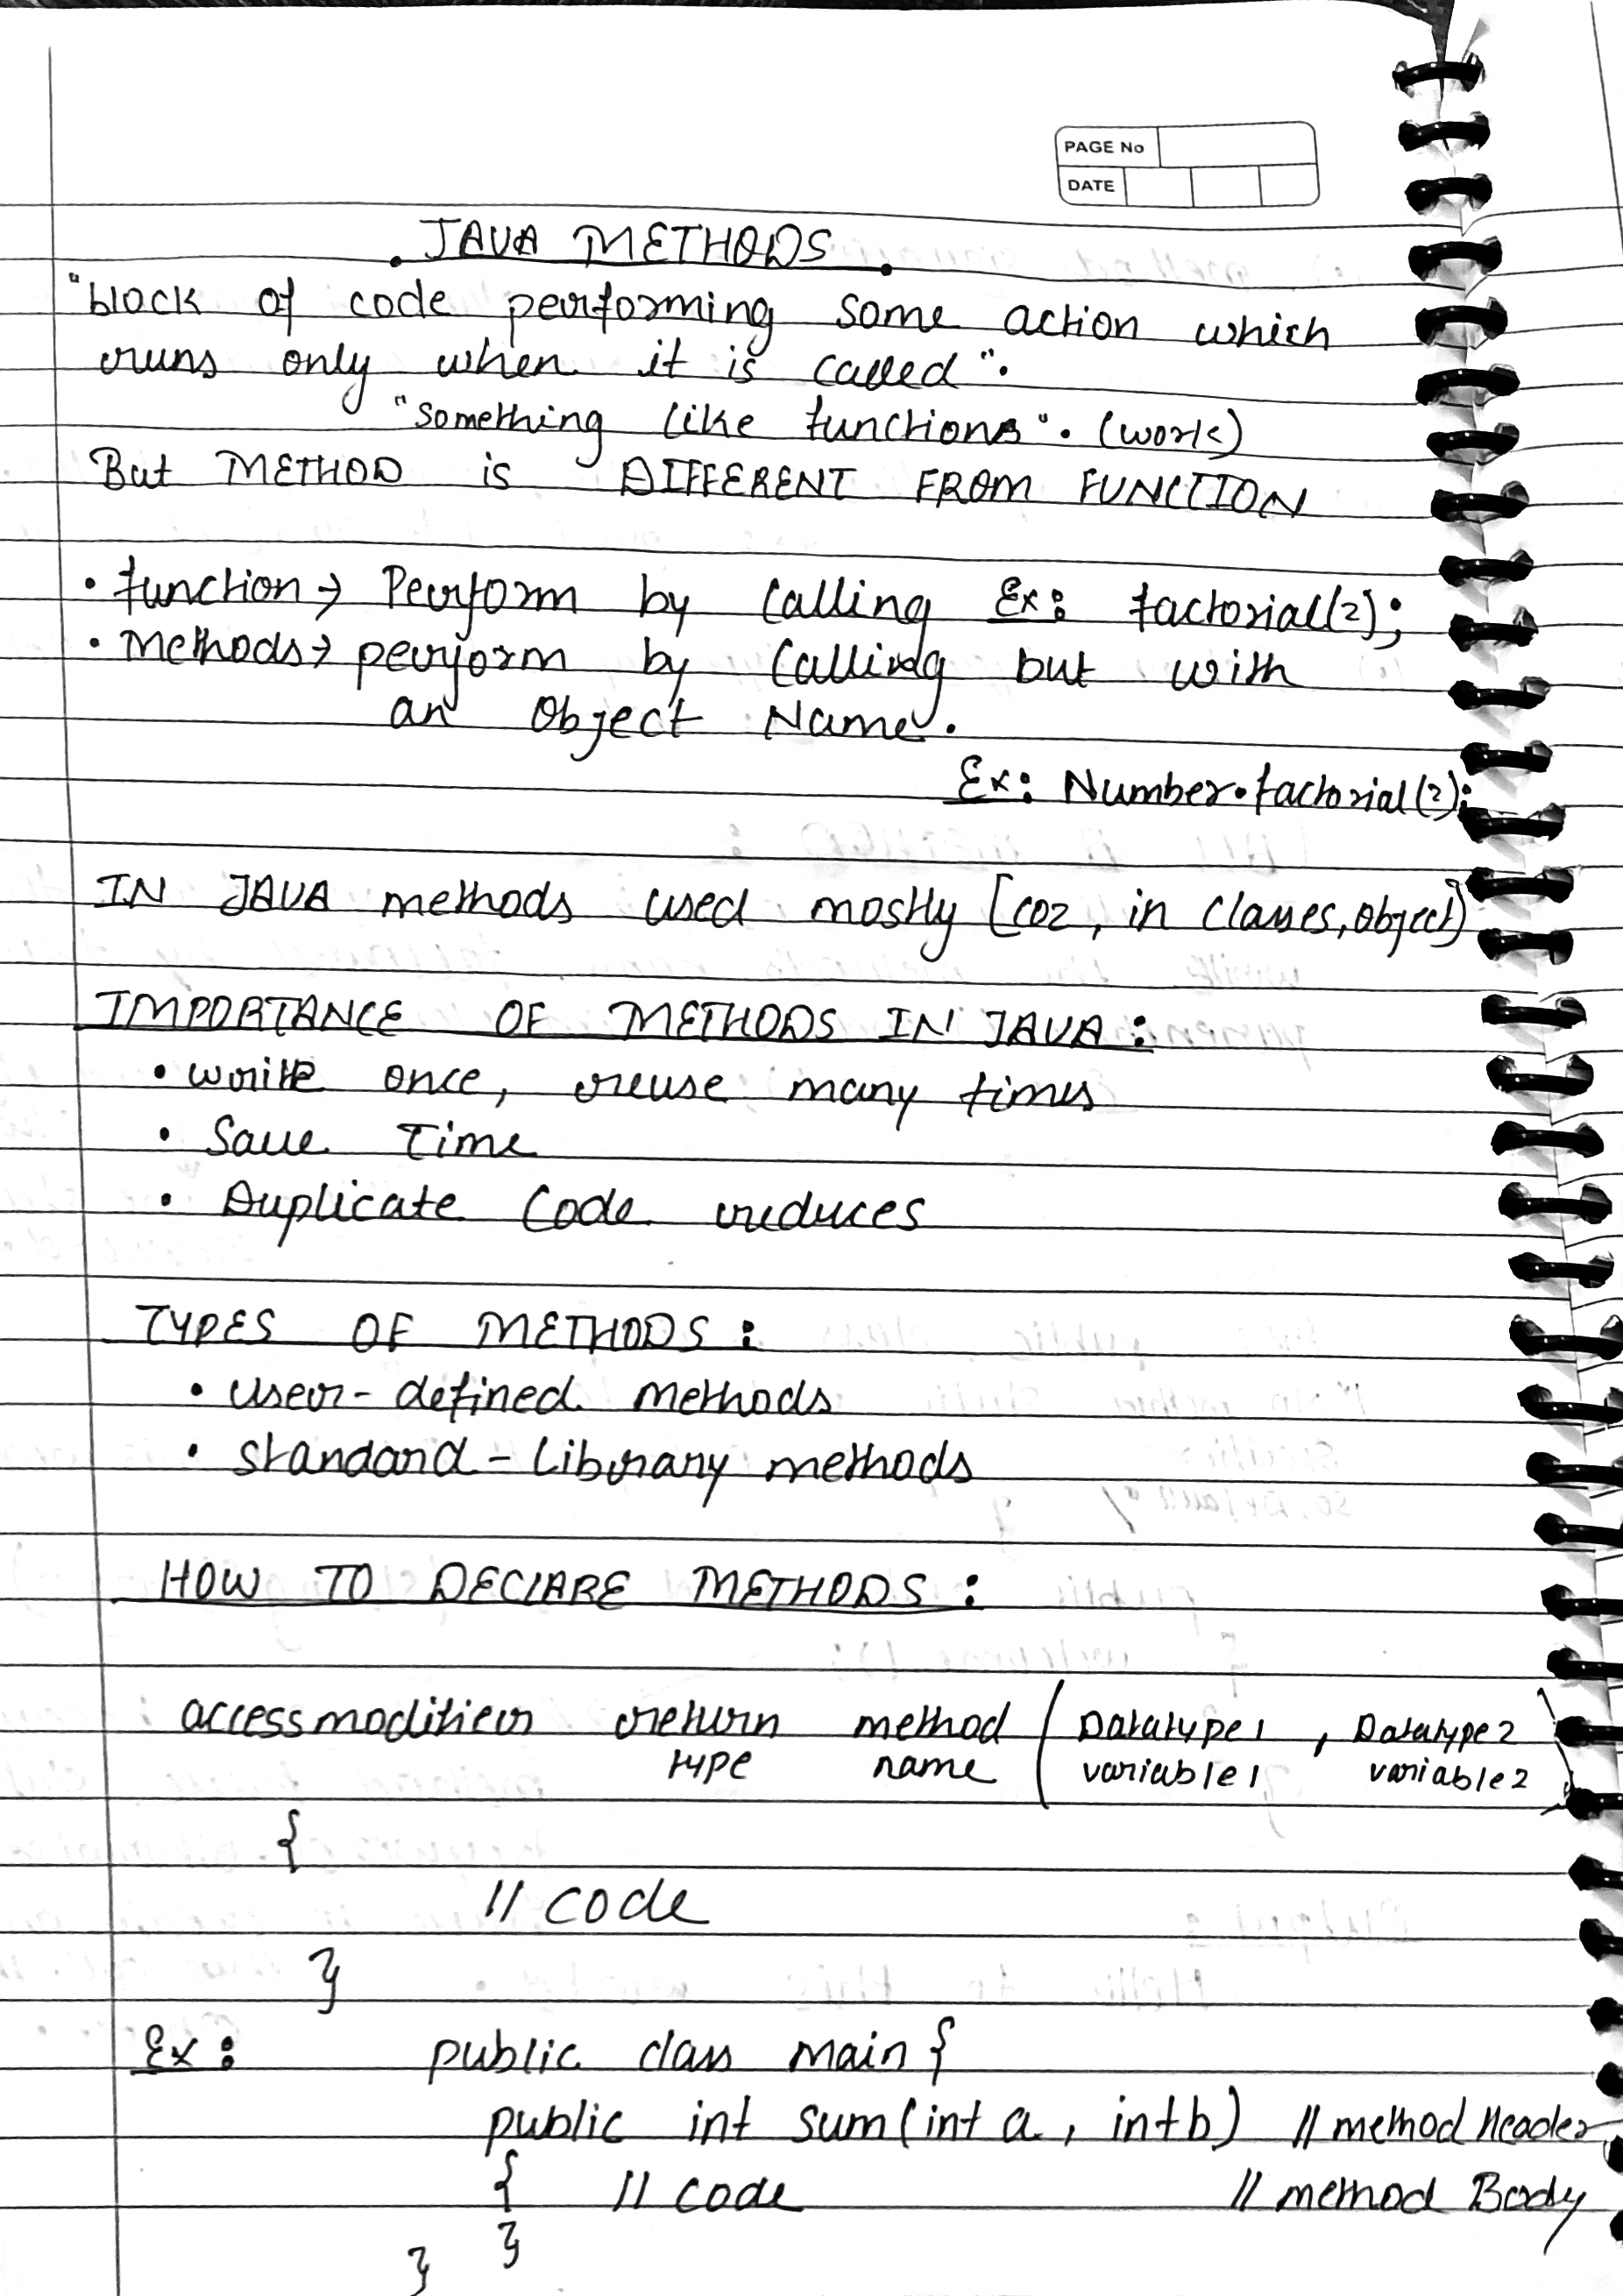 PAGE No
DATE
JAVA METHODS
"block of code performing some action which
runs only when it is called".
"something like functions". (work)
But METHOD is DIFFERENT FROM FUNCTION
• function → Perform by calling Ex: factorial(2);
• Methods → perform by calling but with
an Object Name.
Ex: Number.factorial(2);
IN JAVA methods used mostly [coz, in classes, object]
IMPORTANCE OF METHODS IN JAVA:
• write once, reuse many times
• Save Time
• Duplicate Code reduces
TYPES OF METHODS:
• user-defined methods
• standard-Library methods
HOW TO DECLARE METHODS:
accessmodifier return method ( Datatype1 , Datatype2 )
type name variable1 variable2
{
// code
}
Ex: public class main {
public int sum(int a, int b) // method Header
{ // code // method Body
}
}